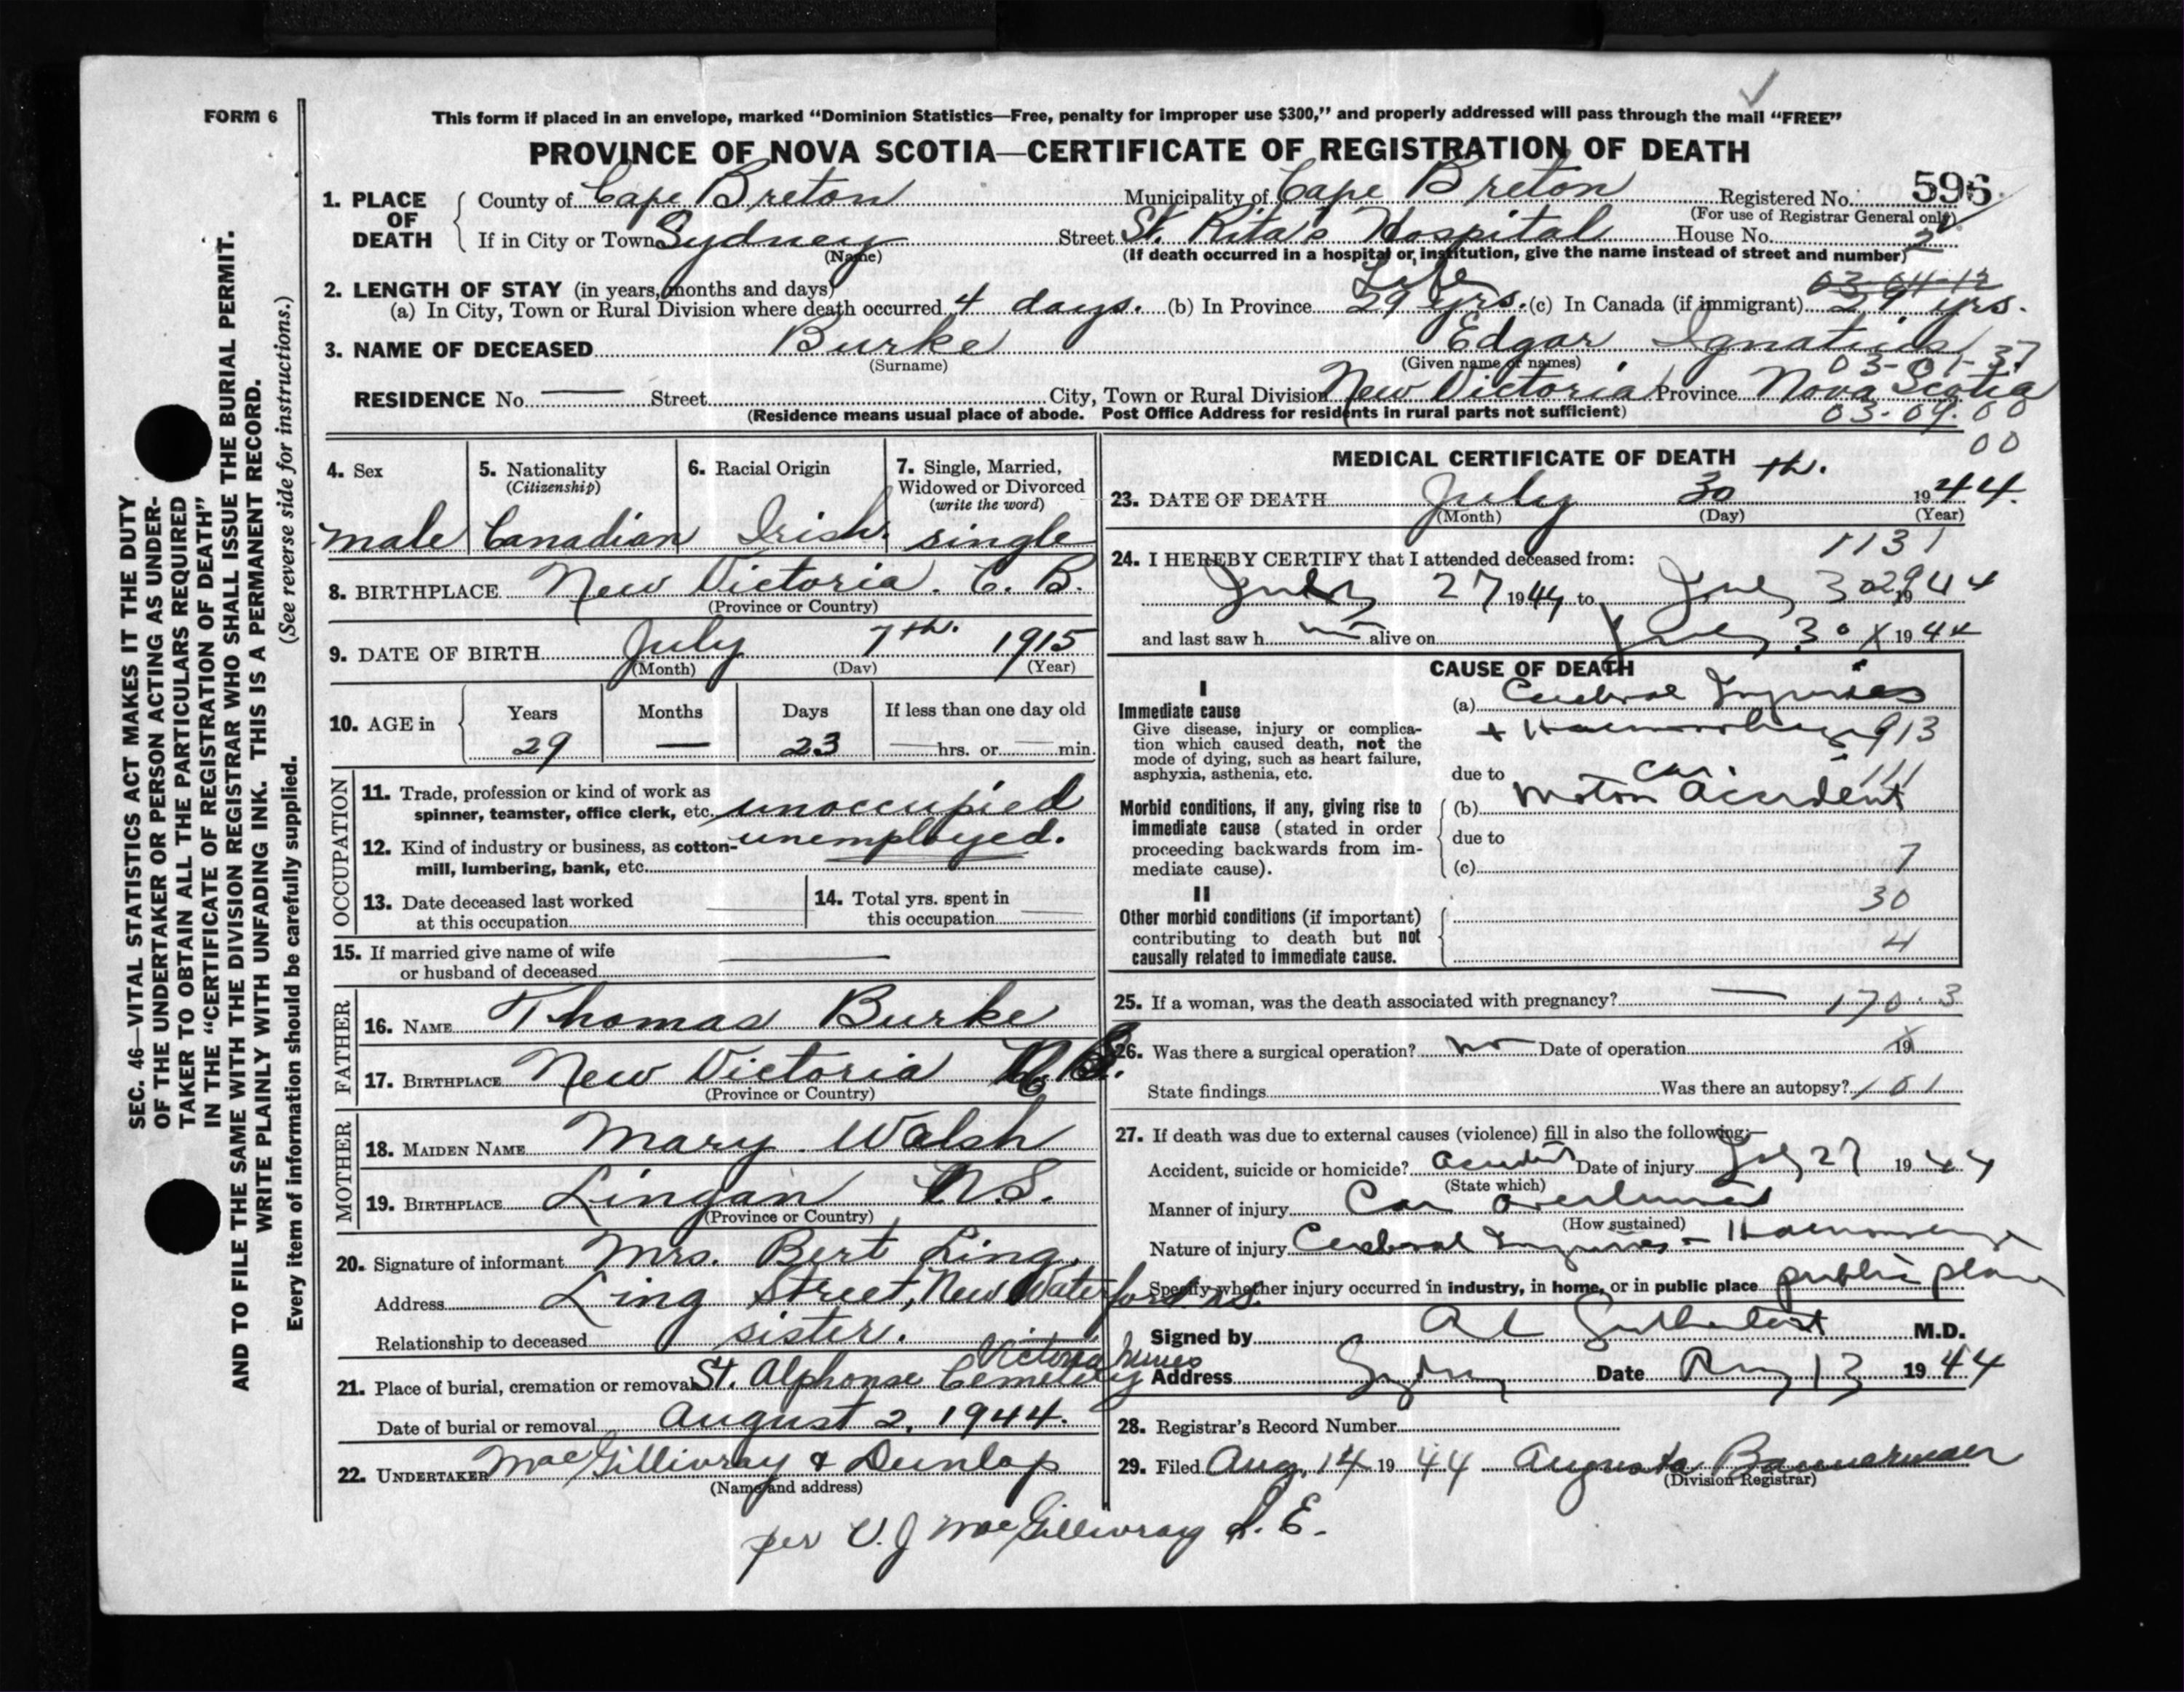 FORM 6
This form if placed in an envelope, marked "Dominion Statistics—Free, penalty for improper use $300," and properly addressed will pass through the mail "FREE"
PROVINCE OF NOVA SCOTIA—CERTIFICATE OF REGISTRATION OF DEATH
1. PLACE OF DEATH
County of Cape Breton Municipality of Cape Breton Registered No. 596
(For use of Registrar General only)
If in City or Town Sydney Street St. Rita's Hospital House No. 2
(Name) (If death occurred in a hospital or institution, give the name instead of street and number)
2. LENGTH OF STAY (in years, months and days) Life 03-04-12
(a) In City, Town or Rural Division where death occurred 4 days. (b) In Province 29 yrs. (c) In Canada (if immigrant) 29 yrs.
3. NAME OF DECEASED Burke Edgar Ignatius
(Surname) (Given name or names) 03-01-37
RESIDENCE No. — Street City, Town or Rural Division New Victoria Province Nova Scotia
(Residence means usual place of abode. Post Office Address for residents in rural parts not sufficient) 03-09-00
00
4. Sex
male
5. Nationality
(Citizenship)
Canadian
6. Racial Origin
Irish.
7. Single, Married,
Widowed or Divorced
(write the word)
single
8. BIRTHPLACE New Victoria. C. B.
(Province or Country)
9. DATE OF BIRTH July 7th. 1915
(Month) (Day) (Year)
10. AGE in
Years Months Days If less than one day old
29 — 23 — hrs. or — min.
OCCUPATION
11. Trade, profession or kind of work as
spinner, teamster, office clerk, etc. unoccupied
12. Kind of industry or business, as cotton- unemployed.
mill, lumbering, bank, etc.
13. Date deceased last worked
at this occupation
14. Total yrs. spent in
this occupation
15. If married give name of wife
or husband of deceased
FATHER
16. NAME Thomas Burke
17. BIRTHPLACE New Victoria C. B.
(Province or Country)
MOTHER
18. MAIDEN NAME Mary Walsh
19. BIRTHPLACE Lingan N.S.
(Province or Country)
20. Signature of informant Mrs. Bert Ling.
Address Ling Street, New Waterford N.S.
Relationship to deceased sister.
Victoria Mines
21. Place of burial, cremation or removal St. Alphonse Cemetery
Date of burial or removal August 2, 1944.
22. UNDERTAKER MacGillivray & Dunlap
(Name and address)
per V. J MacGillivray L. E.
MEDICAL CERTIFICATE OF DEATH
23. DATE OF DEATH July 30th. 1944.
(Month) (Day) (Year)
1131
24. I HEREBY CERTIFY that I attended deceased from:
July 27 1944 to July 30 1944
and last saw h im alive on July 30 1944
CAUSE OF DEATH
I
Immediate cause
Give disease, injury or complica-
tion which caused death, not the
mode of dying, such as heart failure,
asphyxia, asthenia, etc.
(a) Cerebral Injuries
+ Haemorrhage 913
due to car. 111
Morbid conditions, if any, giving rise to
immediate cause (stated in order
proceeding backwards from im-
mediate cause).
(b) Motor Accident
due to
(c) 7
II
Other morbid conditions (if important)
contributing to death but not
causally related to immediate cause.
30
4
25. If a woman, was the death associated with pregnancy? — 170.3
26. Was there a surgical operation? no Date of operation 19
State findings Was there an autopsy? 101
27. If death was due to external causes (violence) fill in also the following:—
Accident, suicide or homicide? accident Date of injury July 27 1944
(State which)
Manner of injury Car overturned
(How sustained)
Nature of injury Cerebral Injuries - Haemorrhage
Specify whether injury occurred in industry, in home, or in public place public place
Signed by A L Sutherland M.D.
Address Sydney Date Aug 13 1944
28. Registrar's Record Number
29. Filed Aug. 14 1944 Augusta Bannerman
(Division Registrar)
SEC. 46—VITAL STATISTICS ACT MAKES IT THE DUTY
OF THE UNDERTAKER OR PERSON ACTING AS UNDER-
TAKER TO OBTAIN ALL THE PARTICULARS REQUIRED
IN THE "CERTIFICATE OF REGISTRATION OF DEATH"
AND TO FILE THE SAME WITH THE DIVISION REGISTRAR WHO SHALL ISSUE THE BURIAL PERMIT.
WRITE PLAINLY WITH UNFADING INK. THIS IS A PERMANENT RECORD.
Every item of information should be carefully supplied. (See reverse side for instructions.)